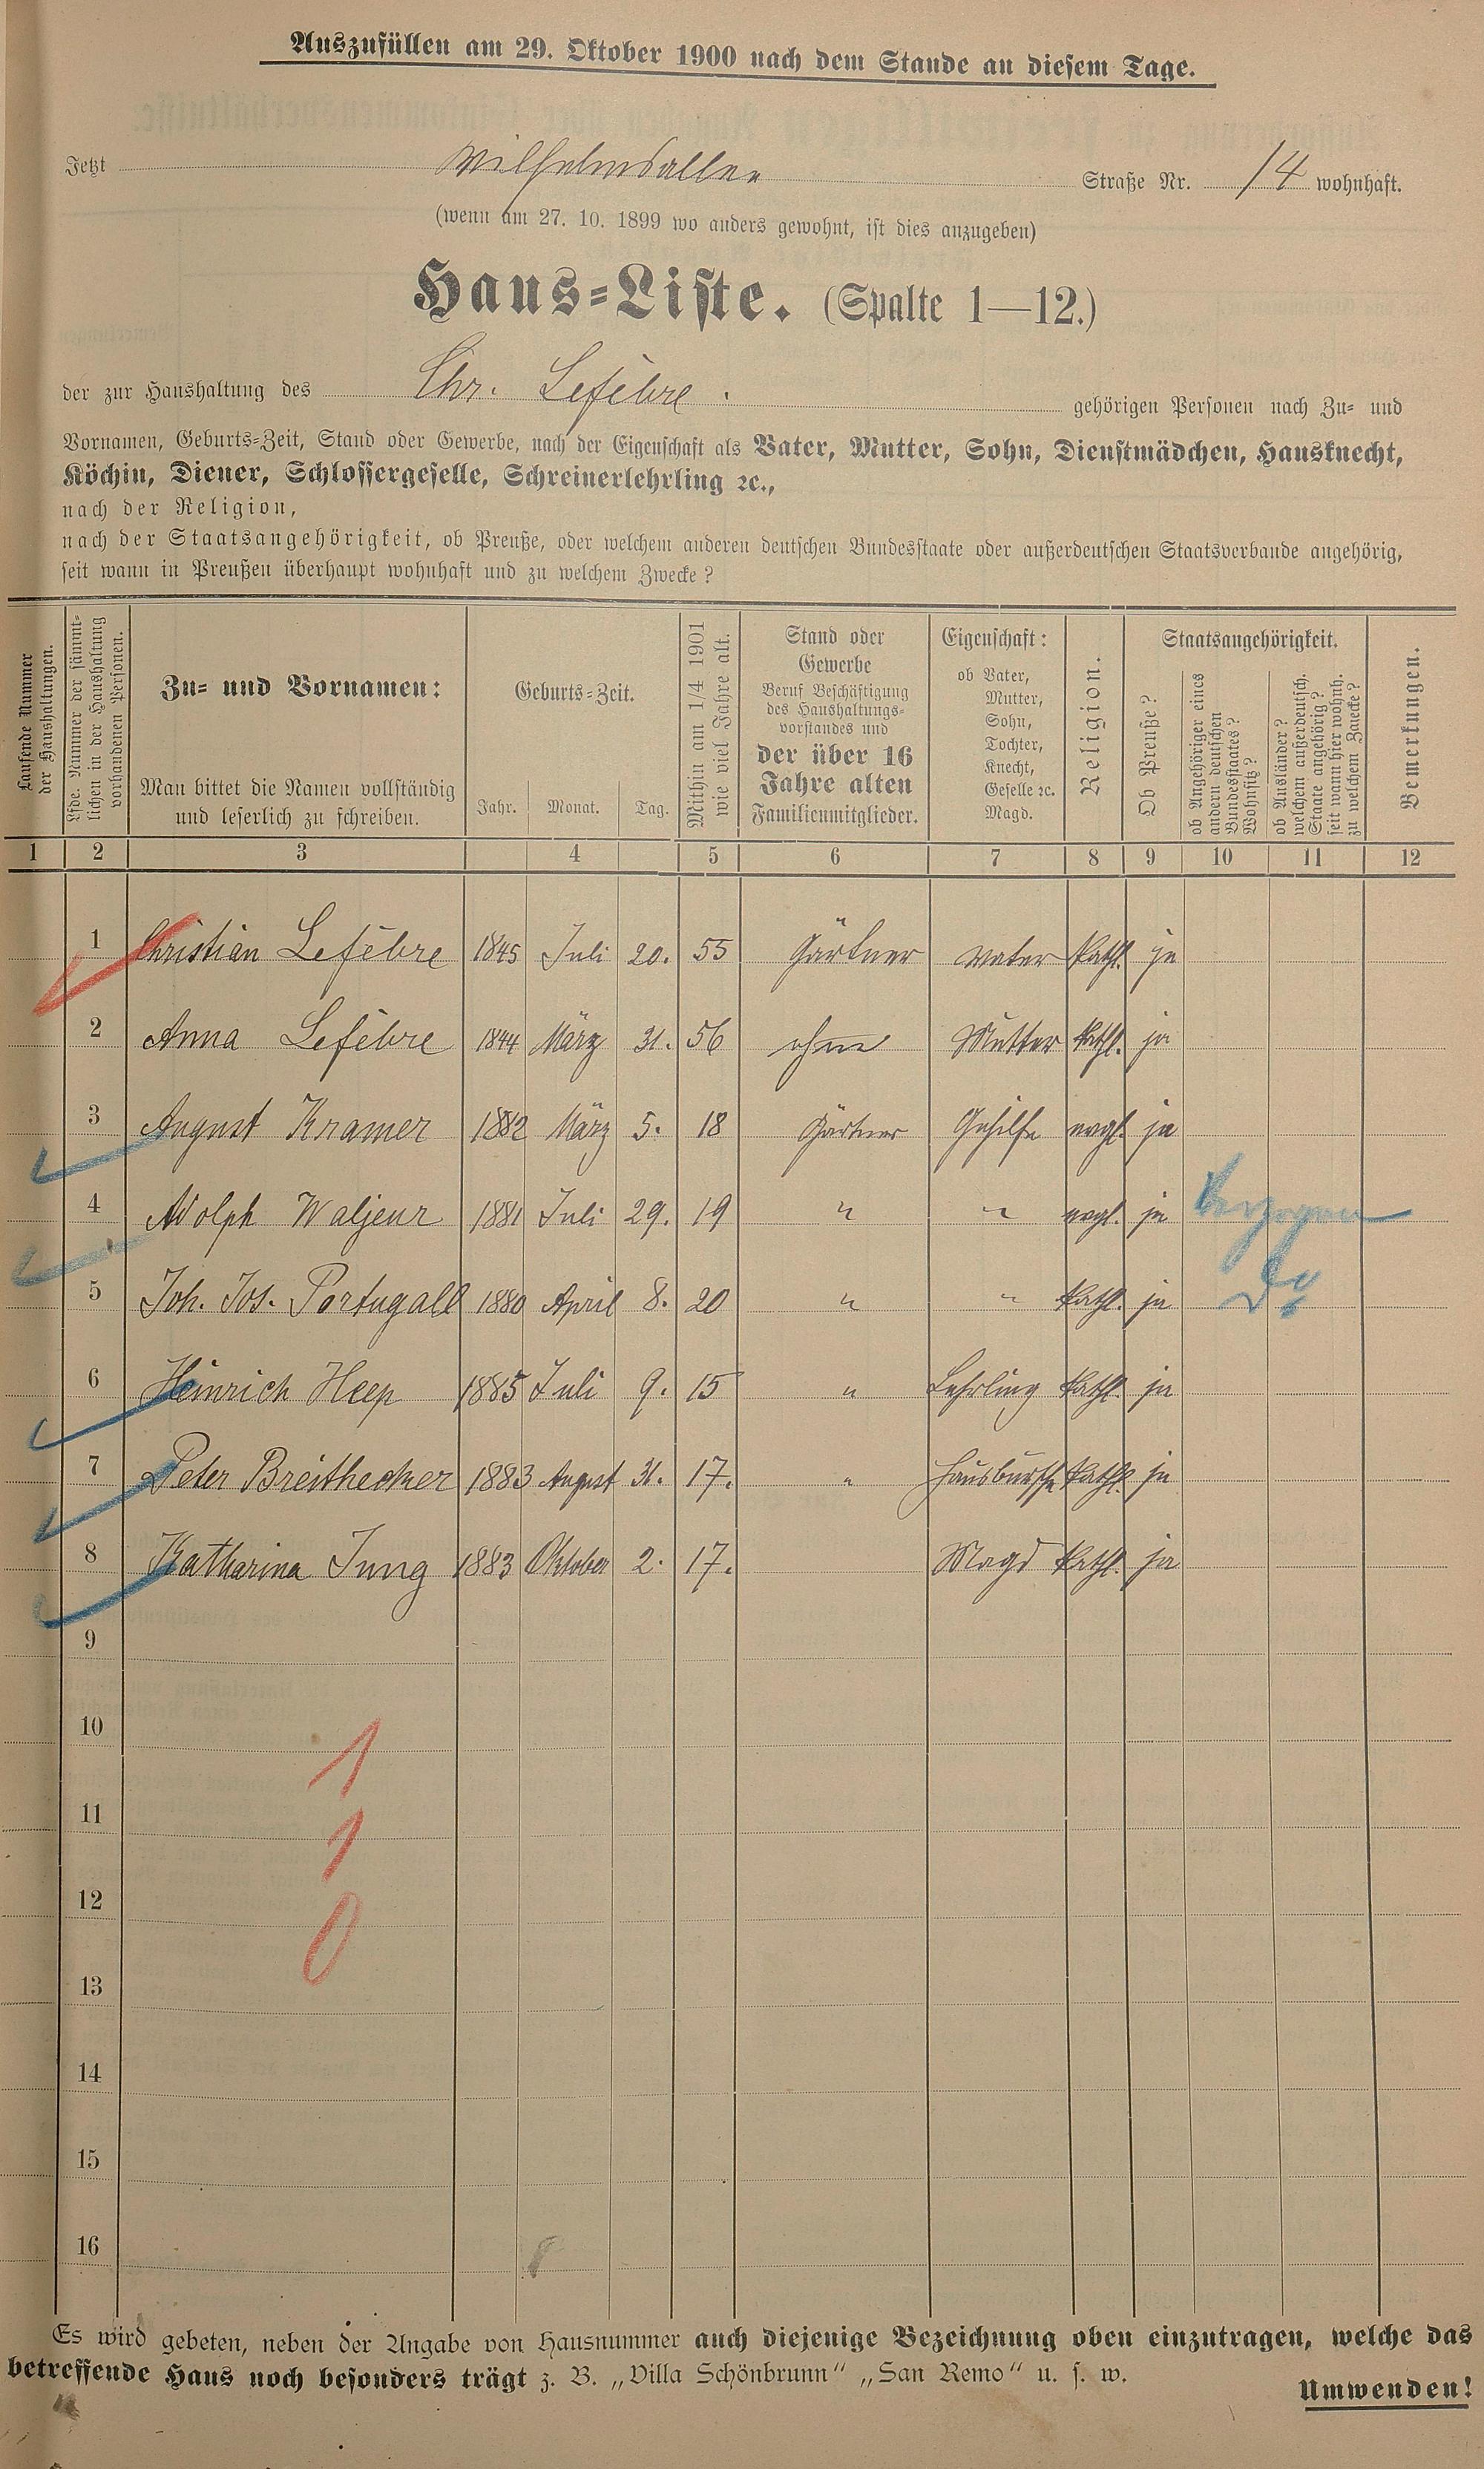 Auszufüllen am 29. Oktober 1900 nach dem Stande an diesem Tage.
Jetzt Wilhelmsallee Straße Nr. 14 wohnhaft.
(wenn am 27. 10. 1899 wo anders gewohnt, ist dies anzugeben)
Haus-Liste. (Spalte 1—12.)
der zur Haushaltung des Chr. Lefèbre. gehörigen Personen nach Zu- und
Vornamen, Geburts-Zeit, Stand oder Gewerbe, nach der Eigenschaft als Vater, Mutter, Sohn, Dienstmädchen, Hausknecht,
Köchin, Diener, Schlossergeselle, Schreinerlehrling ꝛc.,
nach der Religion,
nach der Staatsangehörigkeit, ob Preuße, oder welchem anderen deutschen Bundesstaate oder außerdeutschen Staatsverbande angehörig,
seit wann in Preußen überhaupt wohnhaft und zu welchem Zwecke?
Laufende Nummer
der Haushaltungen.
Lfde. Nummer der sämmt-
lichen in der Haushaltung
vorhandenen Personen.
Zu- und Vornamen:
Man bittet die Namen vollständig
und leserlich zu schreiben.
Geburts-Zeit.
Jahr. Monat. Tag.
Mithin am 1/4 1901
wie viel Jahre alt.
Stand oder
Gewerbe
Beruf Beschäftigung
des Haushaltungs-
vorstandes und
der über 16
Jahre alten
Familienmitglieder.
Eigenschaft:
ob Vater,
Mutter,
Sohn,
Tochter,
Knecht,
Geselle ꝛc.
Magd.
Religion.
Staatsangehörigkeit.
Ob Preuße?
ob Angehöriger eines
andern deutschen
Bundesstaates?
Wohnsitz?
ob Ausländer?
welchem außerdeutsch.
Staate angehörig?
seit wann hier wohnh.
zu welchem Zwecke?
Bemerkungen.
1 2 3 4 5 6 7 8 9 10 11 12
1 Christian Lefèbre 1845 Juli 20. 55 Gärtner Vater kath. ja
2 Anna Lefèbre 1844 März 31. 56 ohne Mutter kath. ja
3 August Kramer 1882 März 5. 18 Gärtner Gehilfe evgl. ja
4 Adolph Waljeur 1881 Juli 29. 19 " " evgl. ja verzogen
5 Joh. Jos. Portugall 1880 April 8. 20 " " kath. ja Do
6 Heinrich Heep 1885 Juli 9. 15 " Lehrling kath. ja
7 Peter Breithecker 1883 August 31. 17. " Hausbursche kath. ja
8 Katharina Jung 1883 Oktober 2. 17. Magd kath. ja
9
10
1
11
1
12
0
13
14
15
16
Es wird gebeten, neben der Angabe von Hausnummer auch diejenige Bezeichnung oben einzutragen, welche das
betreffende Haus noch besonders trägt z. B. „Villa Schönbrunn" „San Remo" u. s. w.
Umwenden!